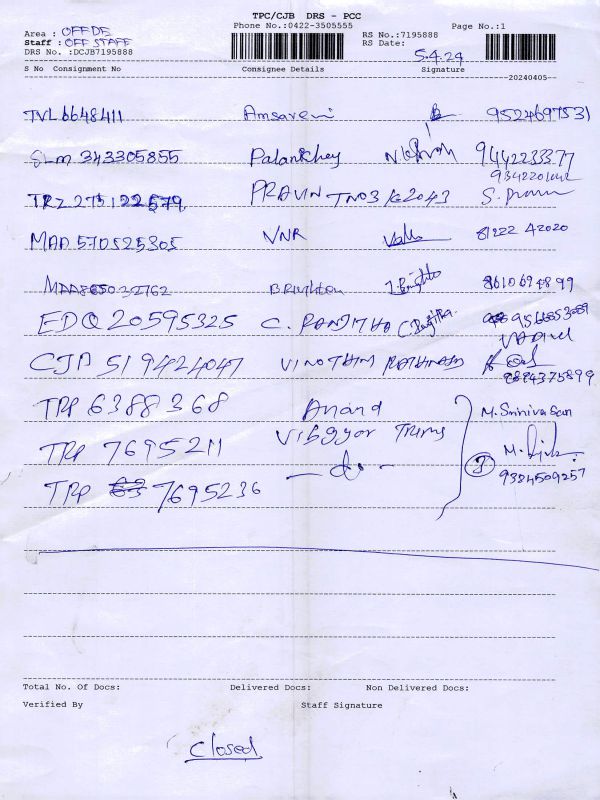 TPC/CJB DRS - PCC
Phone No.:0422-3505555 Page No.:1
Area : OFFDE
Staff : OFF STAFF
DRS No. :DCJB7195888
RS No.:7195888
RS Date: 5.4.24
S No Consignment No Consignee Details Signature
20240405
TVL 6648411 Amsaveni 9524697531
SLM 343305855 9442233377
TRZ 275122579 PRAVIN TN03 K2043
MAA 570525305 VNR 81222 42020
MAA865032762 Brighton 8610694899
EDQ 20595325 C. RANJITHA
CJB 519424047 VINOTHINI RATHINAM 9894375899
TRP 6388368 Anand M. Srinivasan
TRP 7695211 Vibgyor Trims
TRP 7695236 — do — 3 9384509257
Total No. Of Docs: Delivered Docs: Non Delivered Docs:
Verified By Staff Signature
Closed